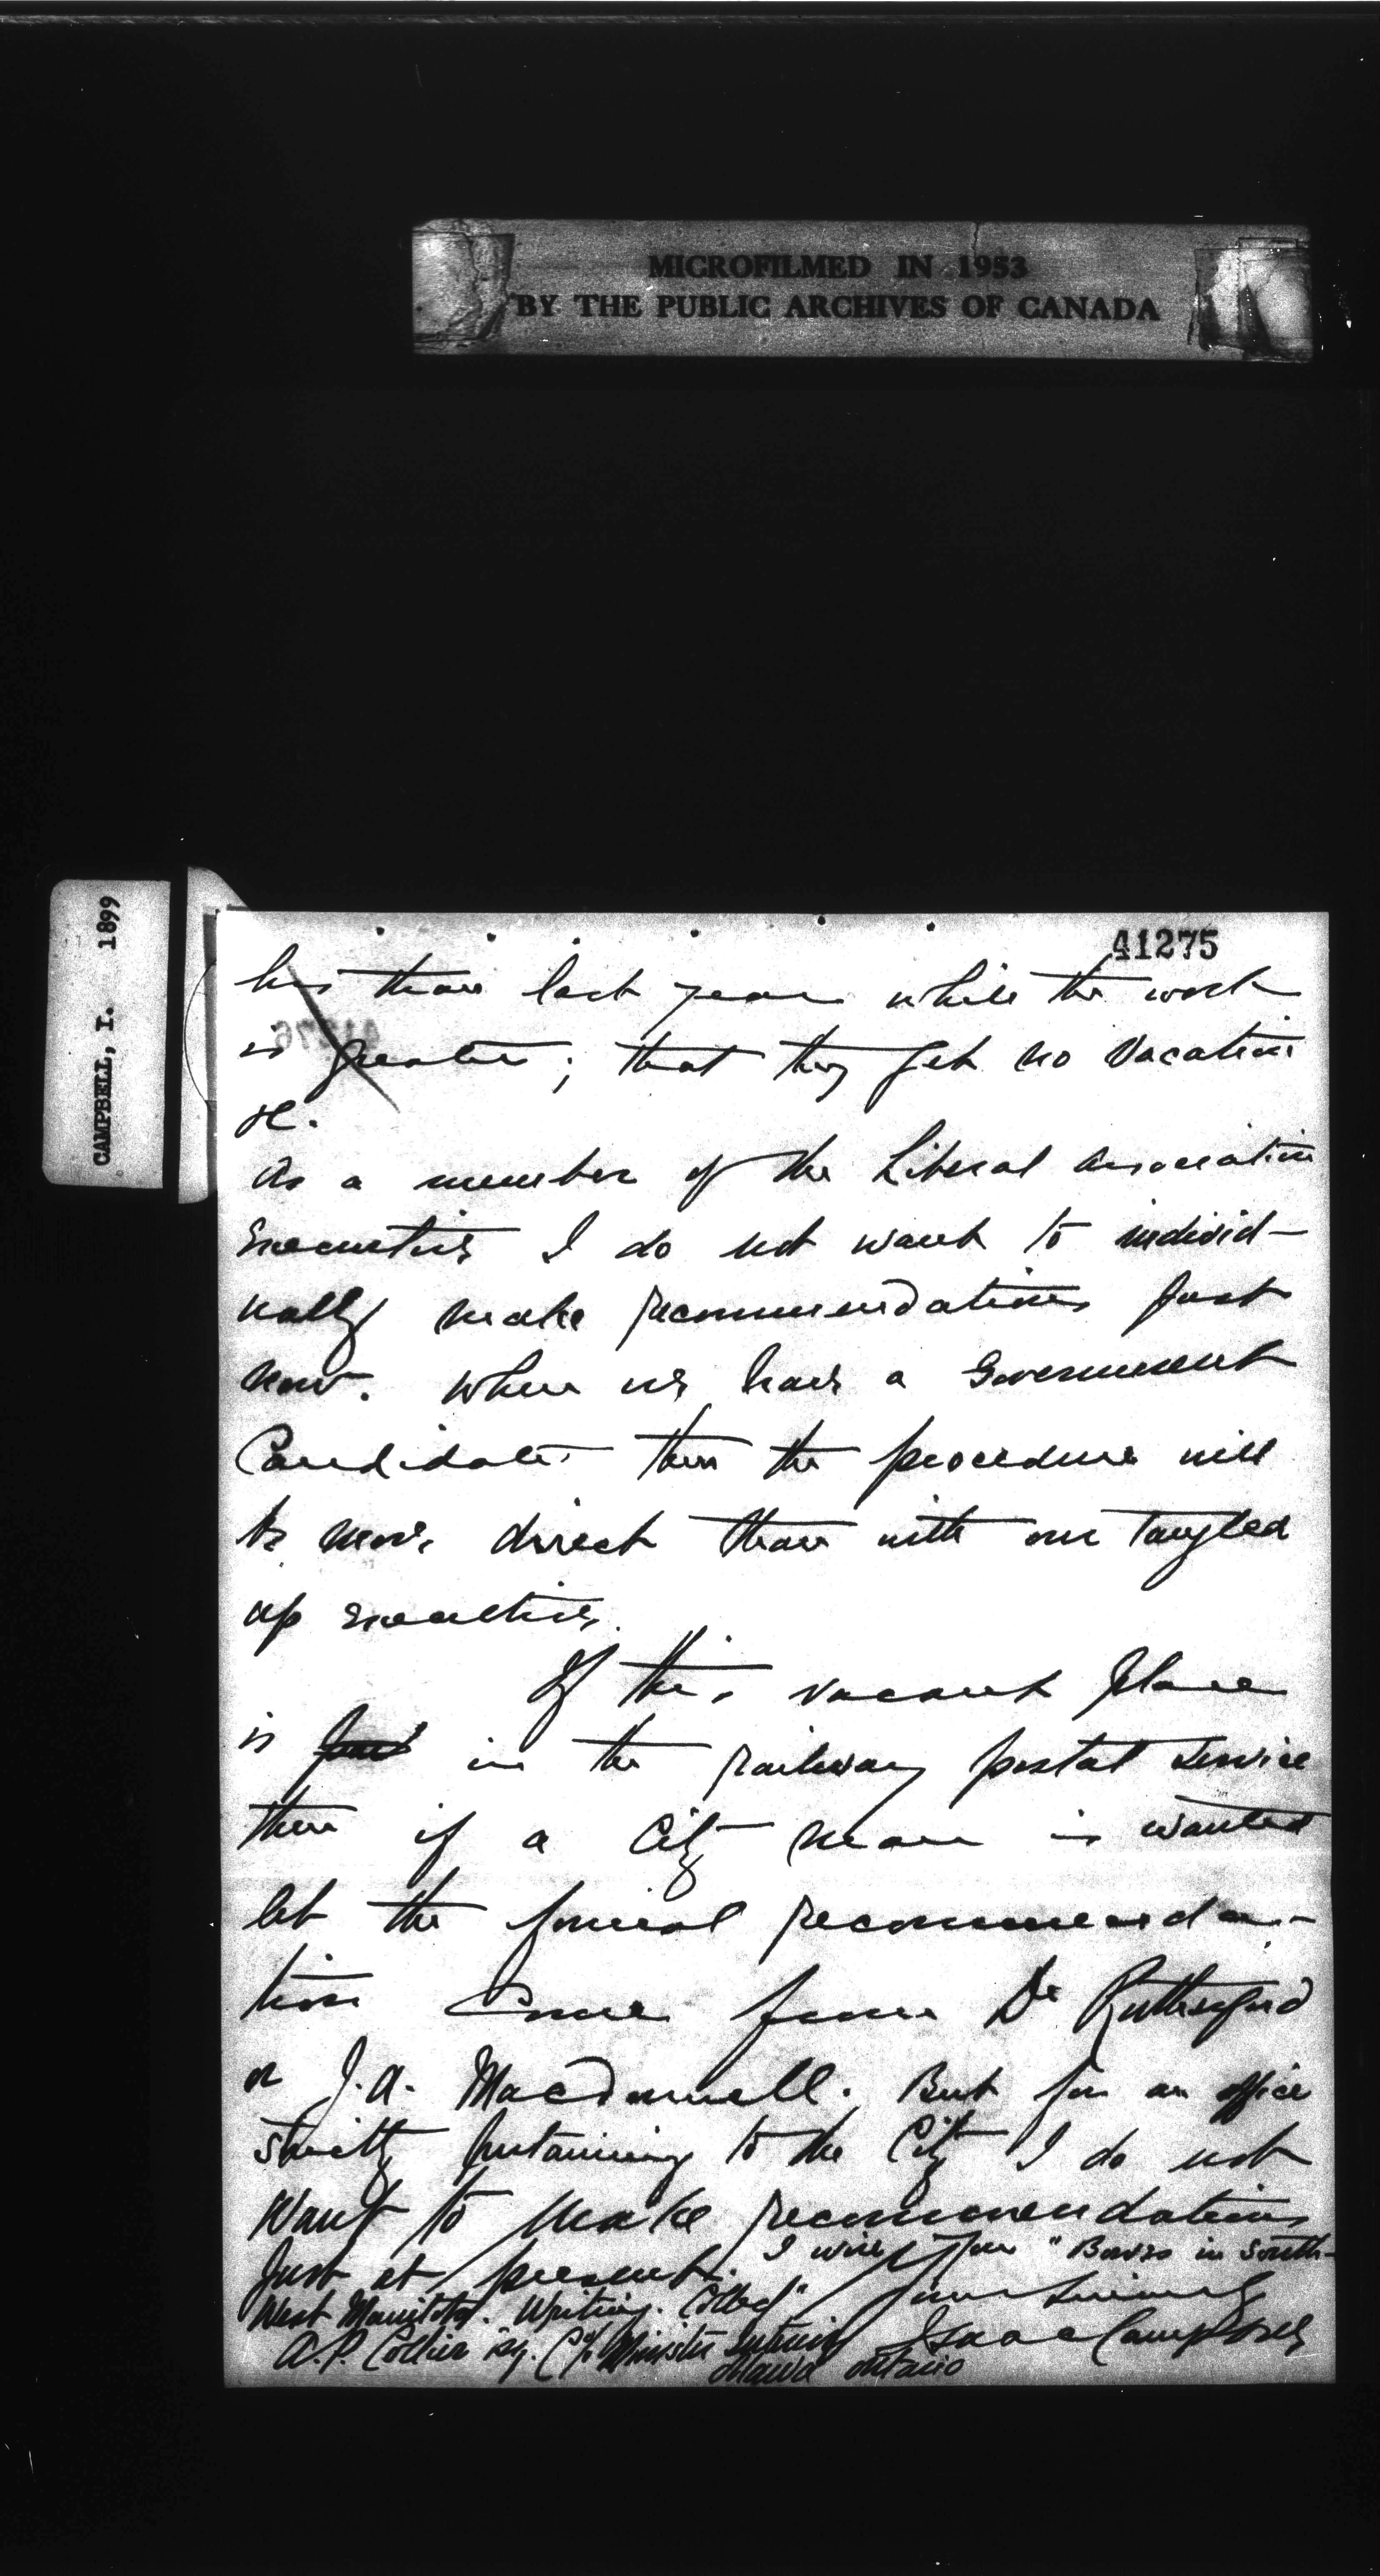 MICROFILMED IN 1953
BY THE PUBLIC ARCHIVES OF CANADA
CAMPBELL, I. 1899
41275
less than last year while the work
is greater; that they get no vacation
&c.
As a member of the Liberal Association
Executive I do not want to individ-
ually make recommendations just
now. When we have a Government
Candidate then the procedure will
be more direct than with our tangled
up executive.
If this vacant place
is in the railway postal service
then if a City man is wanted
let the formal recommenda-
tion come from Dr Rutherford
or J.A. Macdonnell. But for an office
strictly pertaining to the City I do not
want to make recommendations
just at present. I wire you "Bowes in South-
West Manitoba. Writing. Collect"
Yours Sincerely
Isaac Campbell
A.P. Collier Esq. C/o Minister Interior
Ottawa Ontario